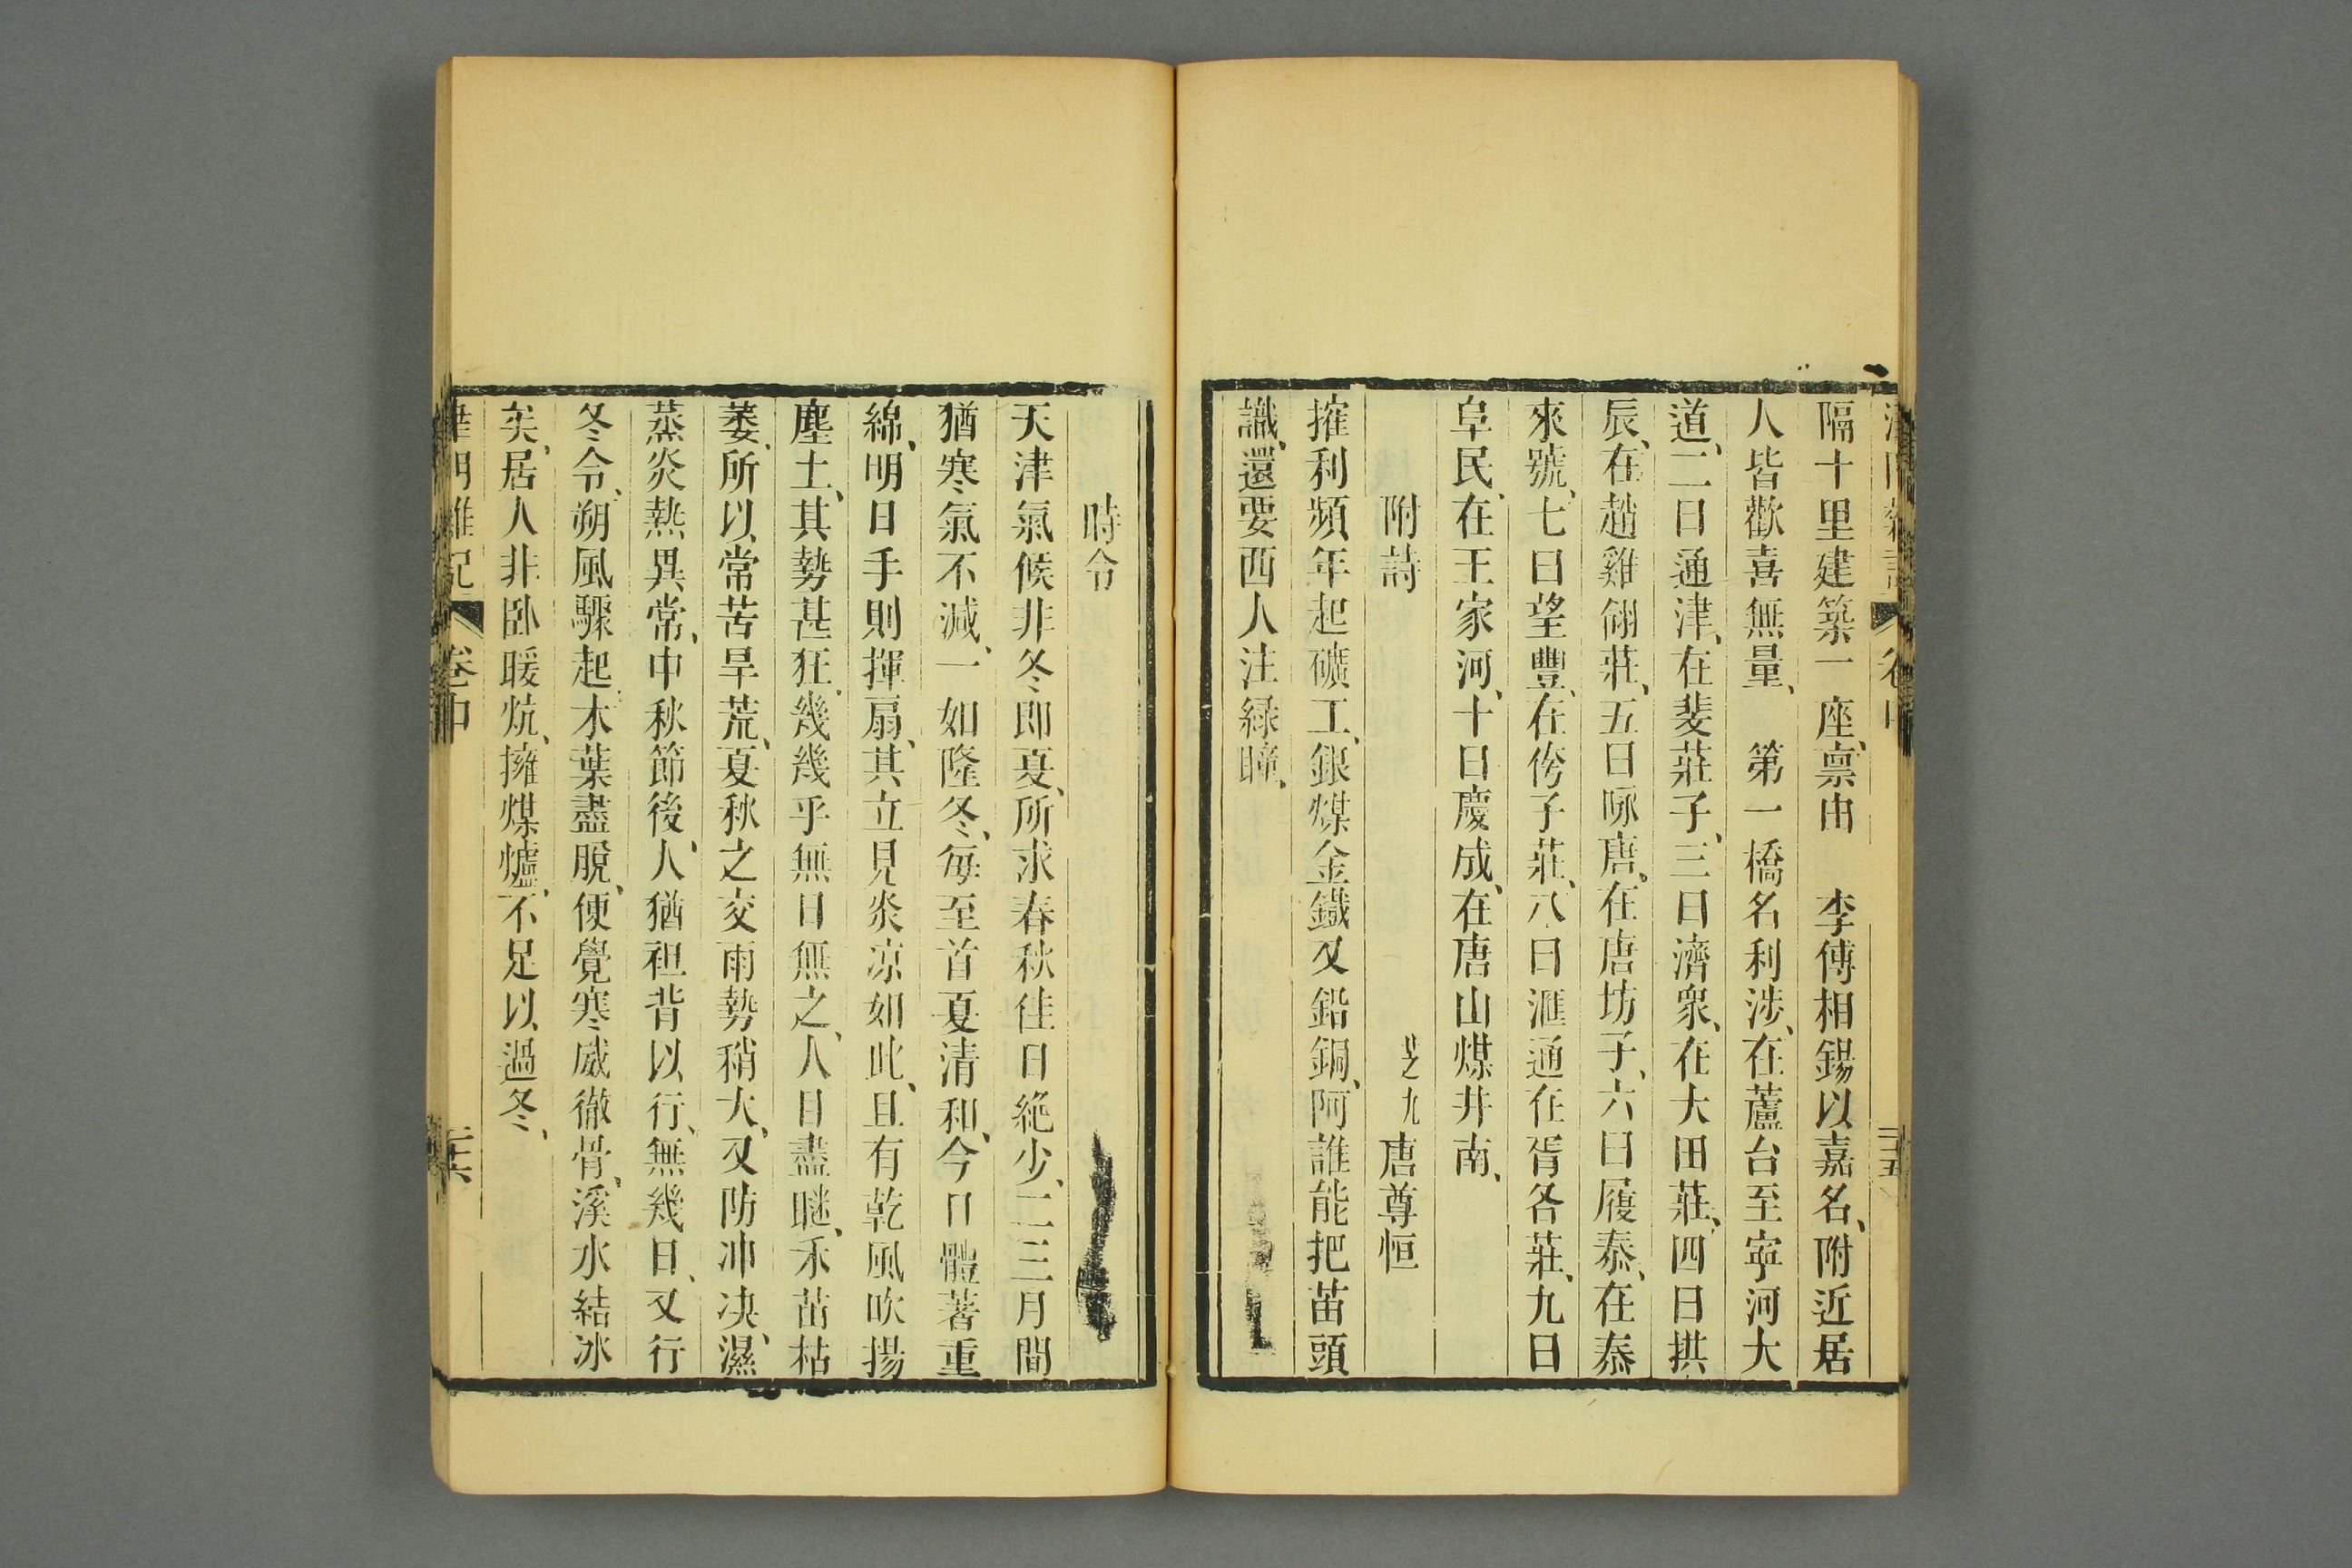 隔十里建築一座、禀由　李傅相錫以嘉名、附近居
人皆歡喜無量、　第一橋名利涉、在蘆台至寧河大
道、二曰通津、在斐莊子、三曰濟衆、在大田莊、四曰拱
辰、在趙雞翎莊、五曰咏唐、在唐坊子、六曰履泰、在泰
來號、七曰望豐、在侉子莊、八曰滙通在胥各莊、九曰
阜民、在王家河、十曰慶成、在唐山煤井南、
附詩　廿之九　唐尊恒
擁利頻年起礦工、銀煤金鐵又鉛銅、阿誰能把苗頭
識、還要西人注緑瞳、
時令
天津氣候非冬即夏、所求春秋佳日絶少、二三月間
猶寒氣不減、一如隆冬、每至首夏清和、今日體著重
綿、明日手則揮扇、其立見炎凉如此、且有乾風吹揚
塵土、其勢甚狂、幾幾乎無日無之、人日盡瞇、禾苗枯
萎、所以常苦旱荒、夏秋之交雨勢稍大、又防冲决、濕
蒸炎熱異常、中秋節後、人猶袒背以行、無幾日、又行
冬令、朔風驟起、木葉盡脫、便覺寒威徹骨、溪水結冰
矣、居人非臥暖炕、擁煤爐、不足以過冬、
卷中